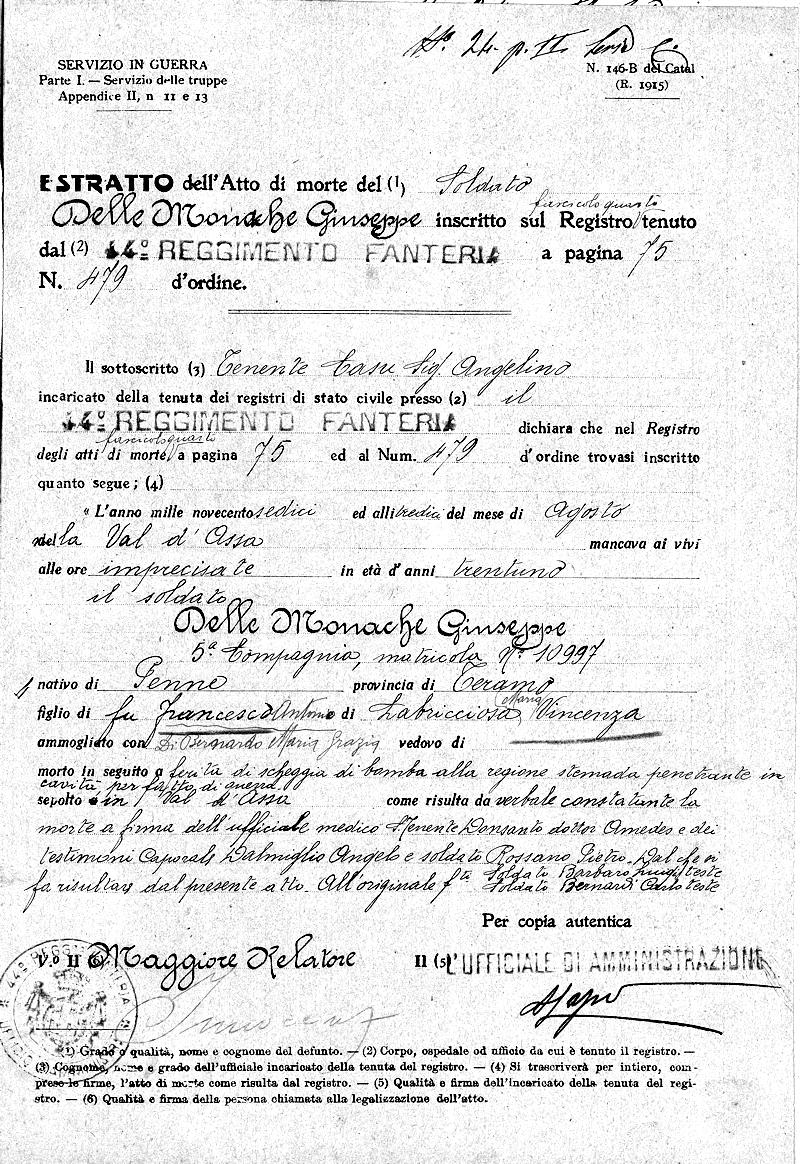 Nº 24 p. II Serie C.
SERVIZIO IN GUERRA
Parte I. — Servizio delle truppe
Appendice II, n 11 e 13
N. 146-B del Catal
(R. 1915)
ESTRATTO dell'Atto di morte del (1) Soldato
fascicolo quarto
Delle Monache Giuseppe inscritto sul Registro tenuto
dal (2) 44º REGGIMENTO FANTERIA a pagina 75
N. 479 d'ordine.
Il sottoscritto (3) Tenente Casu Sig. Angelino
incaricato della tenuta dei registri di stato civile presso (2) il
44º REGGIMENTO FANTERIA dichiara che nel Registro
fascicolo quarto
degli atti di morte, a pagina 75 ed al Num. 479 d'ordine trovasi inscritto
quanto segue; (4)
“ L'anno mille novecento sedici ed alli tredici del mese di Agosto
nella Val d'Assa mancava ai vivi
alle ore imprecisate in età d'anni trentuno
il soldato
Delle Monache Giuseppe
5ª Compagnia, matricola Nº 10997
nativo di Penne provincia di Teramo
Maria
figlio di fu Francesco Antonio di Labricciosa Vincenza
ammogliato con Di Bernardo Maria Grazia vedovo di
morto in seguito a ferita di scheggia di bomba alla regione penetrante in
cavità, per fatto di guerra
sepolto in Val d'Assa come risulta da verbale constatante la
morte a firma dell'ufficiale medico Stenente Donsanto dottor Amedeo e dei
testimoni Caporale Dalmiglio Angelo e soldato Rossano Pietro. Dal che si
fa risultare dal presente atto. All'originale fti Soldato Barbaro Luigi teste
Soldato Bernardi Carlo teste
Per copia autentica
V.º Il (6) Maggiore Relatore Il (5) L'UFFICIALE DI AMMINISTRAZIONE
(1) Grado o qualità, nome e cognome del defunto. — (2) Corpo, ospedale od ufficio da cui è tenuto il registro. —
(3) Cognome, nome e grado dell'ufficiale incaricato della tenuta del registro. — (4) Si trascriverà per intiero, com-
prese le firme, l'atto di morte come risulta dal registro. — (5) Qualità e firma dell'incaricato della tenuta del regi-
stro. — (6) Qualità e firma della persona chiamata alla legalizzazione dell'atto.